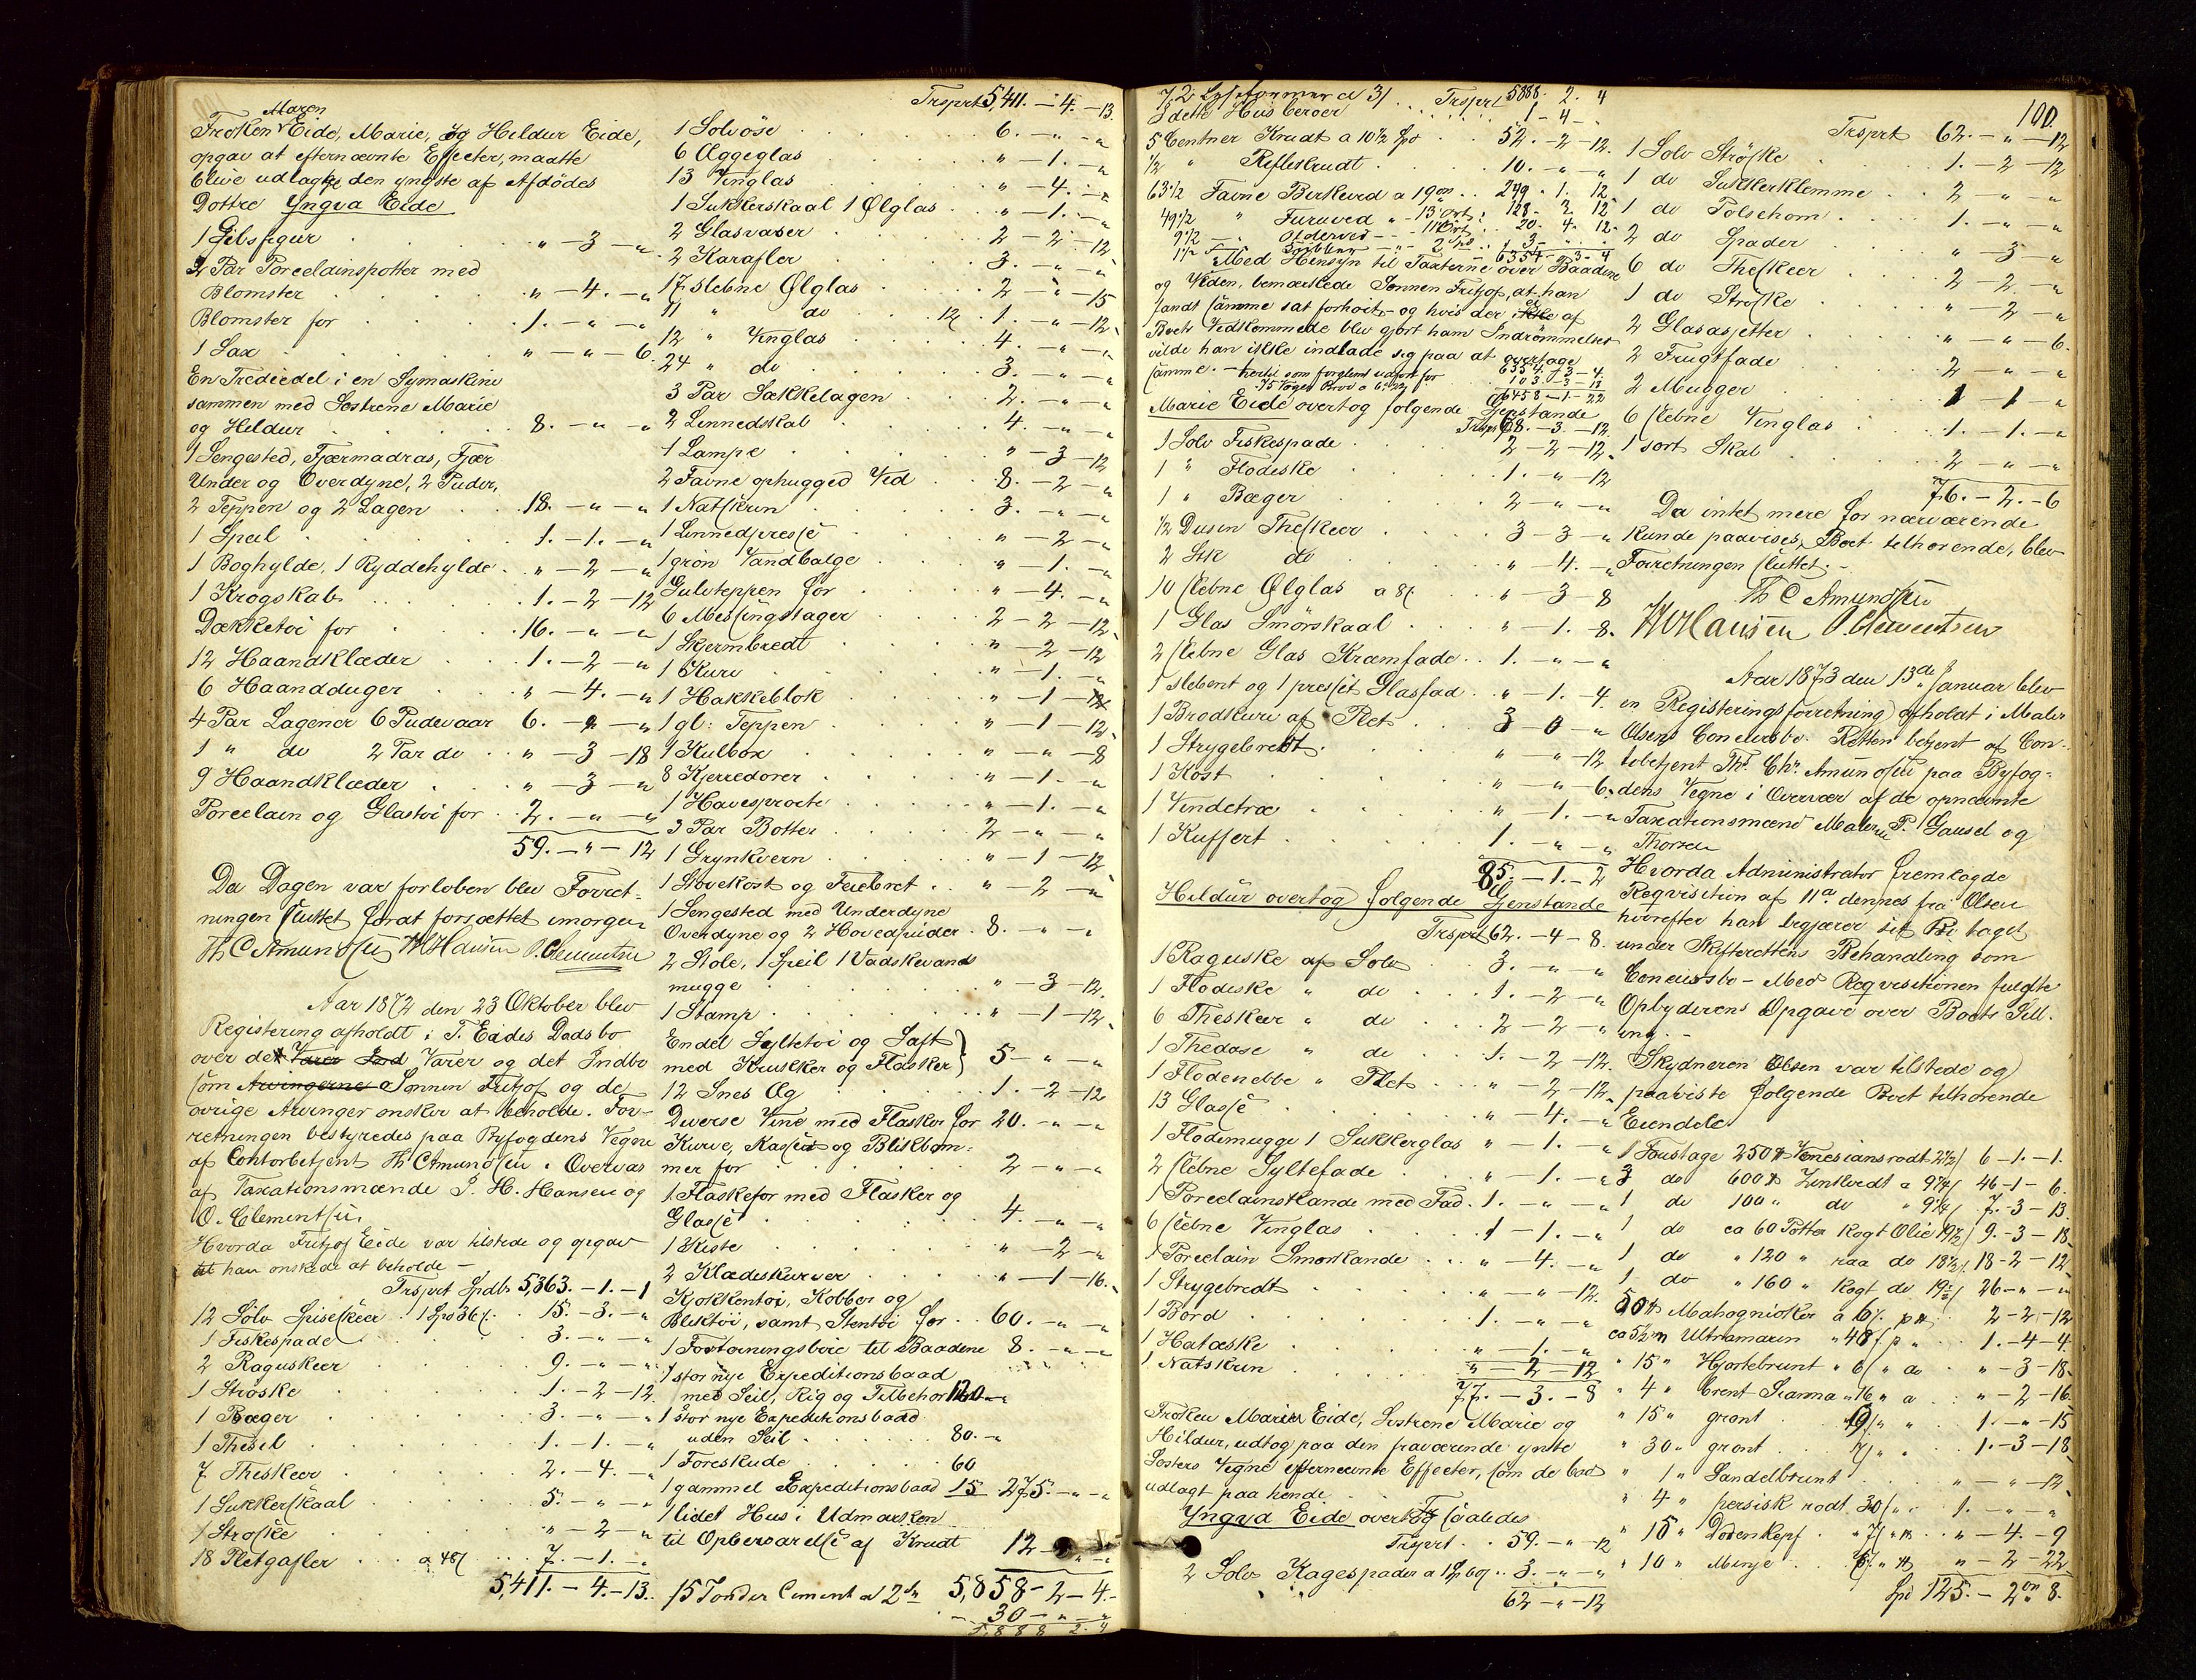 Maren
Frøken Eide, Marie, og Hildur Eide,
opgav at efternævnte Effecter, maatte
blive udlagte den yngste af Afdødes
Døttre Yngva Eide
1 Gibsfigur " - 3 - "
2 Par Porcelainspotter med
Blomster " - 4. - "
Blomster for 1. - " - "
1 Sax " - " - 6.
En Trediedel i en Symaskine
sammen med Søstrene Marie
og Hildur 8. - " - "
1 Sengested, Fjærmadras, Fjær
Under og Overdyne, 2 Puder,
2 Teppen og 2 Lagen 18. - " - "
1 Speil 1. - 1. - "
1 Boghylde, 1 Ryddehylde " - 2 - "
1 Krogskab 1. - 2 - 12
Dækketøi for 16. - " - "
12 Haandklæder 1. - 2 - "
6 Haandduger " - 4. - "
4 Par Lagener 6 Pudevaar 6. - " - "
1 " do 2 Par do " - 3 - 18
9 Haandklæder " - 3 - "
Porcelain og Glastøi for 2. - " - "
59. - " - 12
Da Dagen var forløben blev Forret-
ningen sluttet forat forsættes imorgen
Th C Amundsen W Hansen O. Clementsen
Aar 1872 den 23 Oktober blev
Registering afholdt i T. Eides Dødsbo
over de Varer Ind Varer og det Indbo
som Arvingerne Sønnen Fritjof og de
øvrige Arvinger ønsker at beholde. For-
retningen bestyredes paa Byfogdens Vegne
af Contorbetjent Th C Amundsen i Overvær
af Taxationsmænde J. H. Hansen og
O. Clementsen.
Hvorda Fritjof Eide var tilstede og opgav
at han ønskede at beholde -
Trsprt Spdlr 5,363. - 1. - 1
12 Sølv Spiseskeer 1 Spd 36 s. 15. - 3. - "
1 Fiskespade 3. - " - "
2 Raguskeer 9. - " - "
1 Strøske 1. - 2 - 12
1 Bæger 3. - " - "
1 Thesil 1. - 1. - "
7 Theskeer 2. - 4. - "
1 Sukkerskaal 5. - " - "
1 Strøske " - 2 - "
18 Pletgafler a 48 s 7. - 1. - "
5,411. - 4. - 13.
Trsprt 5,411. - 4. - 13.
1 Solvøse 6. - " - "
6 Æggeglas " - 1. - "
13 Vinglas " - 4. - "
1 Sukkerskaal 1 Ølglas " - 1. - "
2 Glasvaser 2 - 2 - 12
2 Karafler 3. - " - "
17 slebne Ølglas 2 - " - 15
11 " do 12 1. - " - 12
12 " Vinglas 4. - " - "
24 " do 3. - " - "
3 Par Sækkelagen 2. - " - "
2 Linnedskab 4. - " - "
1 Lampe " - 3 - 12
2 Favne ophugged Ved 8. - 2 - "
1 Natskrin 3. - " - "
1 Linnedpresse " - 2 - "
1 grøn Vandbalge " - 1. - "
Gulvteppen for " - 4. - "
6 Messingstager 2 - 2 - 12
1 Skjermbredt " - 2 - 12
1 Kurv " - 1. - "
1 Hakkeblok " - 1 - 12
1 gl: Teppen " - 1 - 12
1 Kulbox " - " - 8
8 Kjerredorer " - 1. - "
1 Havesprøite " - 1. - "
3 Par Bøtter 2 - " - "
1 Grynkvern " - 1 - 12
1 Støvekost og Feiebret " - 2 - "
1 Sengested med Underdyne
Overdyne og 2 Hovedpuder 8. - " - "
2 Stole, 1 Speil 1 Vadskevands
mugge " - 3 - 12.
1 Stamp " - 1 - 12
Endel Syltetøi og Saft
med Krukker og Flasker } 5 - " - "
12 Snes Æg 1. - 2 - 12
Diverse Vine med Flasker for 20. - " - "
Kurve, Kasser og Blikbom-
mer for 2 - " - "
1 Flaskefor med Flasker og
Glasse 4. - " - "
1 Kiste " - 2 - "
2 Klædeskurver " - 1 - 16.
Kjøkkentøi, Kobber og
Bliktøi, samt Stentøi for 60. - " - "
1 Fortøiningsbøie til Baadene 8. - " - "
1 stor nye Expeditionsbaad
med Seil, Rig og Tilbehør 120 - "
1 stor nye Expeditionsbaad
uden Seil 80. - "
1 Foreskude 60
1 gammel Expeditionsbaad 15 275. - " - "
1 lidet Hus i Udmarken
til Opbevarelse af Krudt 12 - " - "
5,858 - 2 - 4.
15 Tønder Cement a 2 Sp 30 - " - "
5,888 2. 4
Trsprt 5888. 2. 4
I dette Hus beroer 1 - 4 -
5 Centner Krudt a 10 1/2 Spd 52. - 2 - 12.
1/2 " Riflekrudt 10. - " - "
63 1/2 Favne Birkeved a 19 ort 249. 1. 12
49 1/2 " Furuved " - 13 ort 128. 2 12
9 1/2 - " Olderved - - 11 Ort 20. 4. 12.
6354 - 3 - 4
Med Hensyn til Taxterne over Baadene
og Veden, bemærkede Sønnen Fritjof, at han
fandt samme sat forhøit, og hvis der ikke ei af
Boets Vedkommende blev gjort ham Indrømmelser
vilde han ikke indlade sig paa at overtage
samme. - hertil som forglemt udført for 6354 - 3 - 4.
103 - 3 - 18
6458 - 1 - 22
Marie Eide overtog følgende Gjenstande
Trsprt 68. - 3. - 12
1 Sølv Fiskespade 2 - 2 - 12
1 " Flødeske 1. - " - 12
1 " Bæger 2 - " - "
1/2 Dusin Theskeer 3 - 3 - "
2 Stk do " - 4. - "
10 slebne Ølglas a 8 s " - 3 - 8
1 Glas Smørskaal " - 1. 8.
2 slebne Glas Kramfade 1. - " - "
1 slebent og 1 presset Glasfad " - 1. - 4.
1 Brødkurv af Plet 3 - 0 - "
1 Strygebredt " - " - 12
1 Kost " - " - 6.
1 Vindetræ " - 1. - "
1 Kuffert 1. - " - "
85. - 1. - 2
Hildur overtog følgende Gjenstande
Trsprt 62. - 4 - 8.
1 Raguske af Sølv 3. - " - "
1 Flødeske " do 1. - 2 - "
6 Theskeer " do 2 - 2 - "
1 Thedase " do 1. - 2 - 12.
1 Flødenebbe " Plet " - 2 - 12.
13 Glasse " - 4. - "
1 Flødemugge 1 Sukkerglas " - 1. - "
2 slebne Syltefade " - 1. - "
1 Porcelainskande med Fad 1. - " - "
6 slebne Vinglas 1 - 1. - "
1 Porcelain Smørkande " - 4. - "
1 Strygebredt " - " - 12.
1 Bord 1. - " - "
1 Hatæske " - 1. - "
1 Natskrin " - 2 - 12
77. - 3. - 8
Frøken Maren Eide, Søstrene Marie og
Hildur, udtog paa den fraværende yngste
Søsters Vegne efternævnte Effecter, som de bad
udlagt paa hende
Yngva Eide overtog saaledes
Trsprt 59. - " - 12
2 Sølv Kagespader a 1 Sp 60 s 3. - " - "
62 - " - 12
100.
Trsprt 62. - " - 12
1 Sølv Strøske 1. - 2 - 12
1 do Sukkerklemme 2 - " - "
1 do Pølsehorn 1. - " - "
2 do Spader " - 3 - "
6 do Theskeer 2 - 2 - "
1 do Strøske " - 2 - "
2 Glasasjetter " - " - 6.
2 Frugtfade 2 - " - "
2 Mugger 1 - 1 - "
6 slebne Vinglas 1. - 1. - "
1 sort Skab 2 - " - "
76. - 2. - 6
Da intet mere for nærværende
kunde paavises Boet tilhørende, blev
Forretningen sluttet. -
Th C Amundsen
W Hansen O. Clementsen
Aar 1873 den 13de Januar blev
en Registeringsforretning afholdt i Maler
Olsens Concursbo. Retten betjent af Con-
torbetjent Ths. Chr. Amundsen paa Byfog-
dens Vegne i Overvær af de opnævnte
Taxationsmænd Malerne P. Gausel og
Thorsen
Hvorda Administrator fremlagde
Reqvisition af 11te dennes fra Olsen
hvorefter han begjærer sit Bo taget
under Skifterettens Behandling som
Concursbo - Med Reqvisitionen fulgte
Opbyderens Opgave over Boets Still-
ing. -
Skydneren Olsen var tilstede og
paaviste følgende Boet tilhørende
Eiendele
1 Foustage 250 lb Venesiansrødt 2 1/2 s 6 - 1. - 1.
3 do 600 lb Zinkhvidt a 9 1/4 s 46 - 1 - 6.
1 do 100 " do " 9 1/4 s 7. - 3 - 13
1 do ca 60 Potter kogt Olie 19 1/2 s 9. - 3 - 18
1 do " 120 " raa do 18 1/2 s 18 - 2 - 12
1 do " 160 " kogt do 19 1/2 s 26 - " - "
50 lb Mahogniokker a 6 s. p lb 2 - 2 - 12
ca 5 1/2 lb Ultramarin " 48 s p " 1. - 4 - 4
" 15 " Hjortebrunt " 6 s " do " - 3 - 18
" 4 " brent Sianna " 16 " a " - 2 - 16
" 15 " grønt 19 s " " 1. - " - 15
" 30 " grønt 7 s " " 1. - 3 - 18
" 1 " Sandelbrunt " - " - 12
" 4 " persisk rødt 30 s " " 1. - " - "
" 15 " Dødenkopf " 7 s " lb " - 4. - 9
" 10 " Mønje 7. " lb " - 2 - 22
Spd 125. - 2 ort 8.